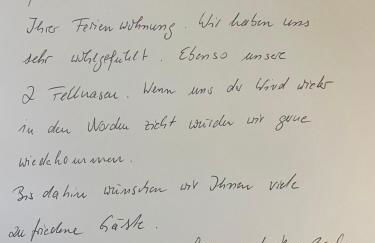 Ihrer Ferienwohnung. Wir haben uns
sehr wohlgefühlt. Ebenso unsere
2 Fellnasen. Wenn uns der Wind wieder
in den Norden zieht würden wir gerne
wiederkommen.
Bis dahin wünschen wir Ihnen viele
zufriedene Gäste.